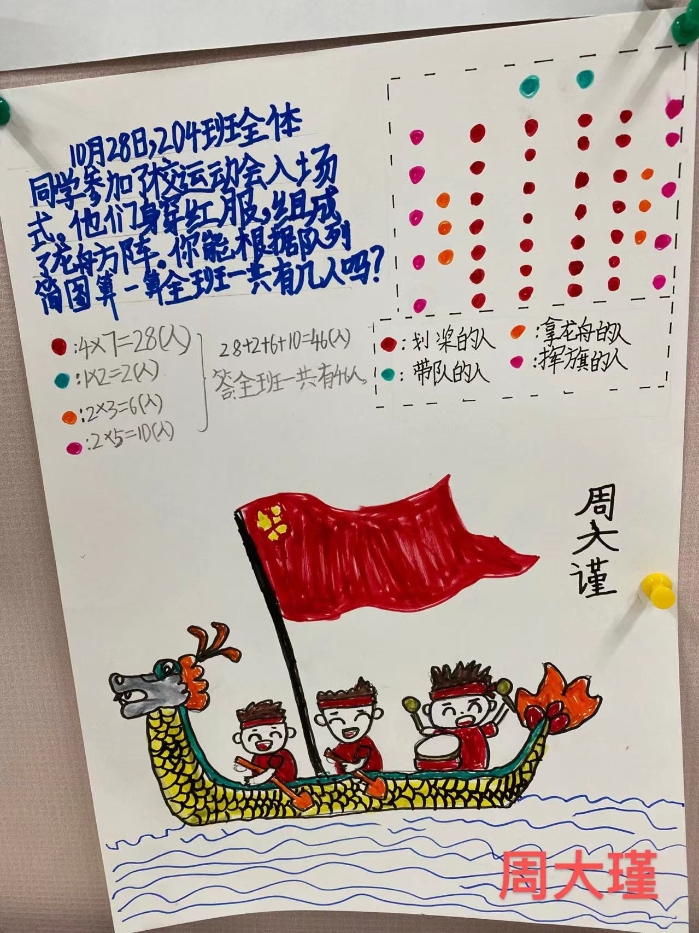 10月28日,204班全体
同学参加了校运动会入场
式。他们身穿红服,组成
了龙舟方阵。你能根据队列
简图算一算全班一共有几人吗?
:4×7=28(人)
:1×2=2(人)
:2×3=6(人)
:2×5=10(人)
28+2+6+10=46(人)
答:全班一共有46人。
:划桨的人
:拿龙舟的人
:带队的人
:挥旗的人
周大谨
周大瑾